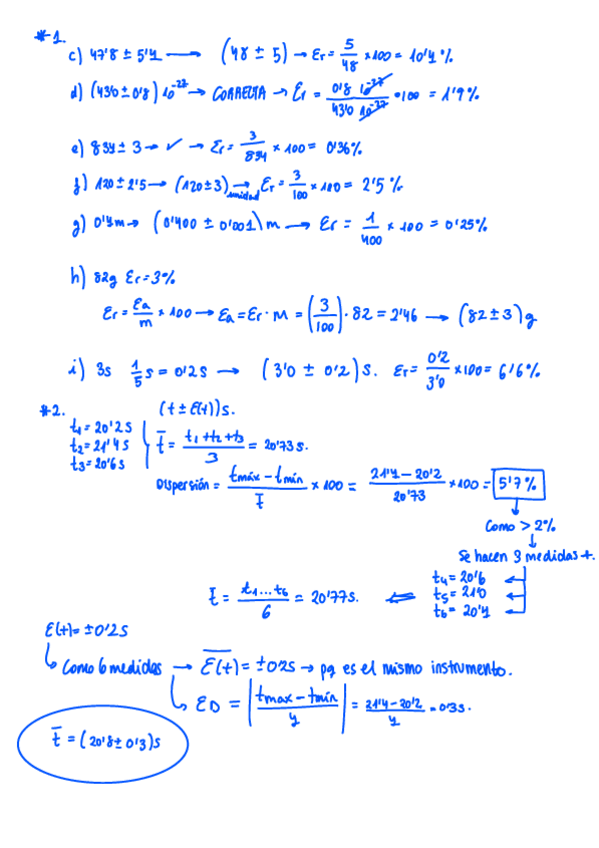 #1.
c) 47'8 ± 5'4 → (48 ± 5) → Er = 5/48 × 100 = 10'4%
d) (43'0 ± 0'8) 10⁻²⁷ → CORRECTA → Er = 0'8 10⁻²⁷/43'0 10⁻²⁷ · 100 = 1'9%
e) 834 ± 3 → ✓ → Er = 3/834 × 100 = 0'36%
f) 120 ± 2'5 → (120 ± 3) unidad → Er = 3/100 × 100 = 2'5%
g) 0'4m → (0'400 ± 0'001) m → Er = 1/400 × 100 = 0'25%
h) 82g Er = 3%
Er = Ea/m × 100 → Ea = Er · M = (3/100) · 82 = 2'46 → (82 ± 3) g
i) 3s 1/5 s = 0'2s → (3'0 ± 0'2) s. Er = 0'2/3'0 × 100 = 6'6%
#2. (t ± E(t)) s.
t1 = 20'2s
t2 = 21'4s
t3 = 20'6s
t̄ = t1 + t2 + t3/3 = 20'73s.
Dispersión = tmáx - tmín/t̄ × 100 = 21'4 - 20'2/20'73 × 100 = 5'7%
Como > 2%
Se hacen 3 medidas +.
t4 = 20'6
t5 = 21'0
t6 = 20'4
t̄ = t1...t6/6 = 20'77s.
E(t) = ±0'2s
Como 6 medidas → E(t) = ±0'2s → pq es el mismo instrumento.
ED = |tmax - tmín/4| = 21'4 - 20'2/4 = 0'3s.
t̄ = (20'8 ± 0'3)s